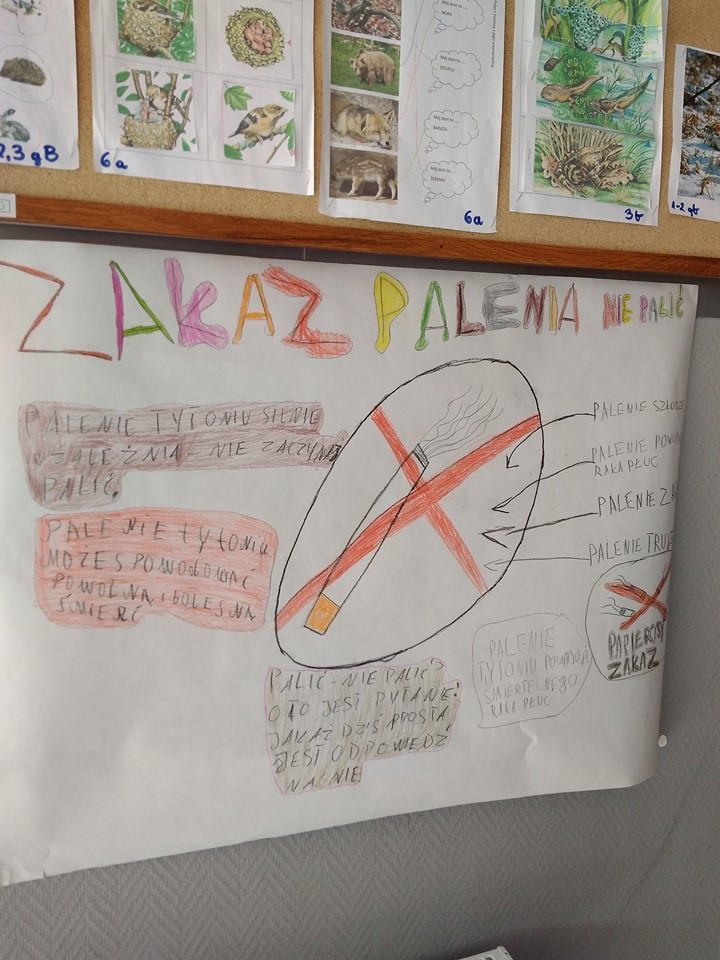 2,3 gB
6a
Mój dom to ...
NORA
Mój dom to ...
DZIUPLA
Mój dom to ...
BARŁÓG
Mój dom to ...
ŻEREMIE
6a
3b
1-2 gb
ZAKAZ PALENIA NIE PALIĆ
PALENIE TYTONIU SILNIE
UZALEŻNIA - NIE ZACZYNAJ
PALIĆ.
PALENIE tytoniu
MOŻE SPOWODOWAĆ
POWOLNĄ i BOLESNĄ
ŚMIERĆ
PALENIE SZKODZI
PALENIE POWOD
RAKA PŁUC
PALENIE ZA
PALENIE TRUJE
PAPIEROSY
ZAKAZ
PALENIE
TYTONIU POWODUJE
ŚMIERTELNEGO
RAKA PŁUC
PALIĆ - NIE PALIĆ?
OTO JEST PYTANIE!
JAKAŻ DZIŚ PROSTA
JEST ODPOWIEDŹ
NA NIE